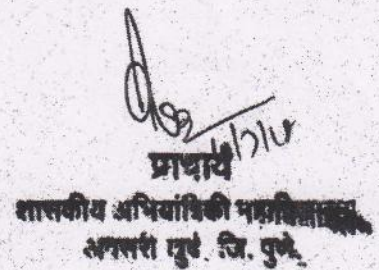 प्राचार्य
शासकीय अभियांत्रिकी महाविद्यालय
अवसरी खुर्द. जि. पुणे.